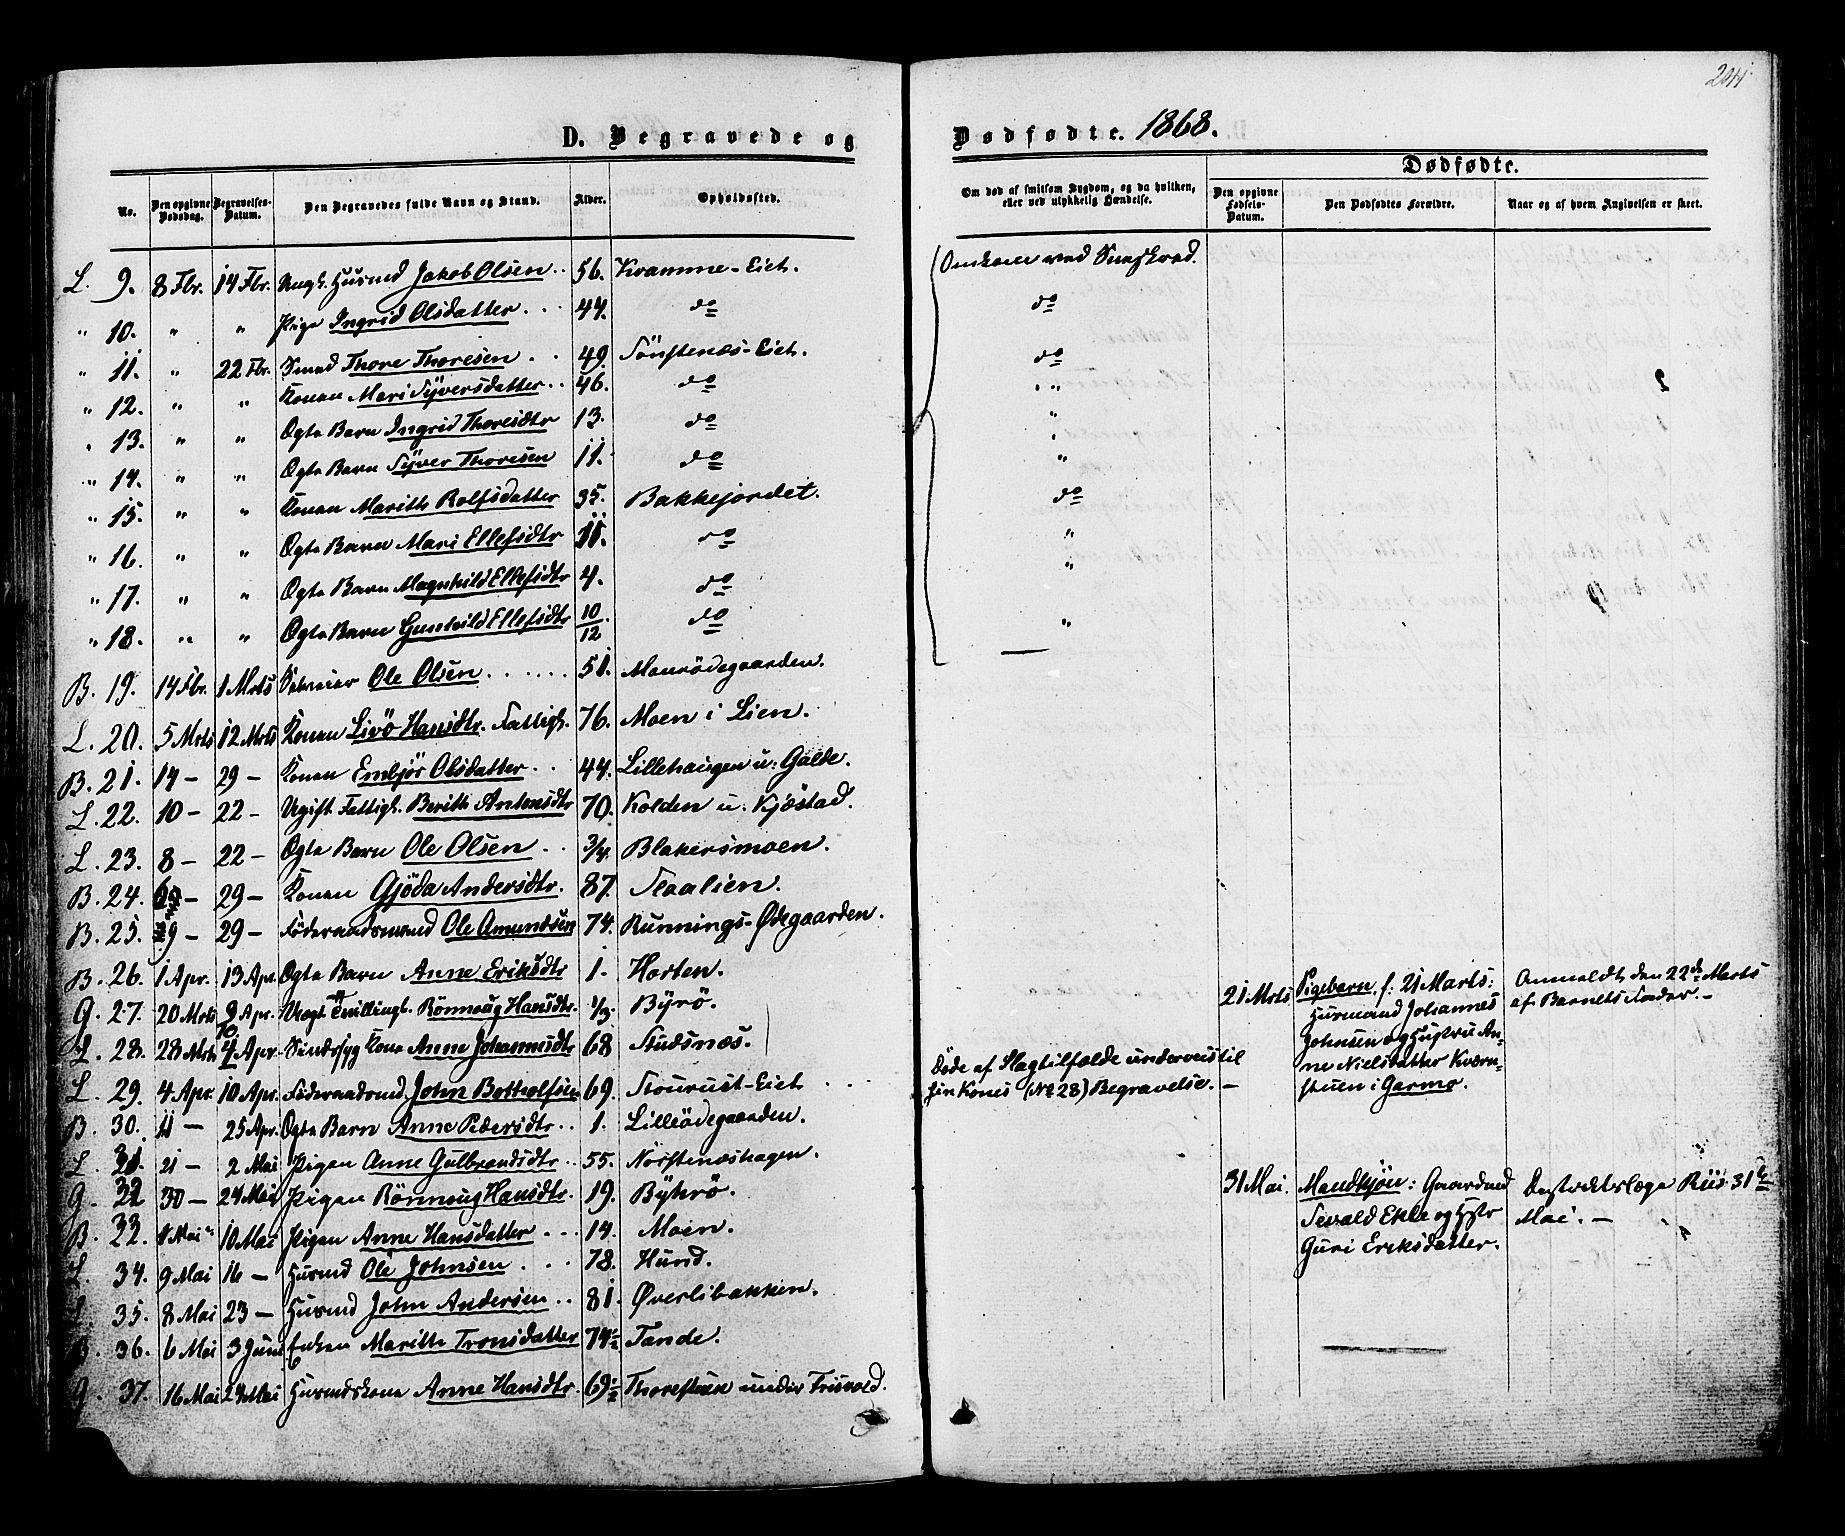 204
D. Begravede og Dødfødte. 1868.
Dødfødte.
No. | Den opgivne Dødsdag. | Begravelses-Datum. | Den Begravedes fulde Navn og Stand. | Alder. | Opholdssted. | Om død af smitsom Sygdom, og da hvilken, eller ved ulykkelig Hændelse. | Den opgivne Fødsels-Datum. | Den Dødfødtes Forældre. | Naar og af hvem Angivelsen er skeet.
L. 9. 8 Fbr. 14 Fbr. Husmd Jakob Olsen.. 56. Kvamme-Eiet. Omkom ved Sneskred.
" 10. " " Pige Ingrid Olsdatter... 44. do do
" 11. " 22 Fbr. Smed Thore Thoresen.. 49. Sönstenæs-Eiet. do
" 12. " " Konen Mari Syversdatter.. 46. do " "
" 13. " " Ægte Barn Ingrid Thoresdtr 13. do "
" 14. " " Ægte Barn Syver Thoresen 11. do "
" 15. " " Konen Marith Rolfsdatter 35. Bakkejordet. do
" 16. " " Ægte Barn Mari Ellefsdtr 11. do "
" 17. " " Ægte Barn Magnhild Ellefsdtr 4. do "
" 18. " " Ægte Barn Gunhild Ellefsdtr 10/12. do "
B. 19. 14 Fbr. 1 Mrts Ole Olsen...... 51. Maurödegaarden.
L. 20. 5 Mrts 12 Mrts Konen Livö Hansdtr. Fattigl. 76. Moen i Lien.
B. 21. 14 - 29 - Konen Embjör Olsdatter.. 44. Lillehaugen u: Galde.
L. 22. 10 - 22 - Ugift Fattigl. Berith Antonsdtr 70. Kolden u: Kjøstad.
L. 23. 8 - 22 - Ægte Barn Ole Olsen.. 3/4. Blakersmoen.
B. 24. - 29 - Konen Gjöda Andersdtr. 87. Staalien.
B. 25. 19 - 29 - Föderaadsmand Ole Amundsen 74. Runnings-Ødegaarden.
B. 26. 1 Apr. 13 Apr. Ægte Barn Anne Eriksdtr 1. Horten.
G. 27. 20 Mrts 9 Apr. Uægt. Tvillingb. Rönnaug Hansdtr. 1/3. Byrö.
21 Mrts Pigebarn, f: 21 Marts: Anmeldt den 22de Marts
Husmand Johannes af Barnets Fader. -
Johnsen og Hustru An-
ne Nielsdatter Kværn-
stuen i Garmo.
L. 28. 28 Mrts Apr. Sindssyg Kone Anne Johannesdtr 68 Studsnæs.
L. 29. 4 Apr. 10 Apr. Föderaadsmd. John Bottolfsen 69. Stourust-Eiet... Døde af Slagtilfælde underveis til
sin Kones (No 28) Begravelse. -
B. 30. 11 - 25 Apr. Ægte Barn Anne Pedersdtr.. 1. Lilleödegaarden.
L. 31. 21 - 2 Mai Pigen Anne Gulbrandsdtr.. 55. Norstenæshagen.
G. 32 30 - 24 Mai Pigen Rönnaug Hansdtr. 19. Byhrö.
31 Mai. Mandkjön: Gaardmd Distriktslæge Riis 31te
Sevald Ekle og Hstr Mai. -
Guri Eriksdatter.
B. 33. 1 Mai 10 Mai Pigen Anne Hansdatter... 14. Moen.
L. 34. 9 Mai 16 - Husmd Ole Johnsen.... 78. Hund.
L. 35. 8 Mai 23 - Husmd John Andersen.. 81. Øverlibakken.
B. 36. 6 Mai 3 Juni Enken Marith Tronsdatter 74 1/2 Tande.
G. 37. 16 Mai 24 Mai Husmdskone Anne Hansdtr. 69 1/2 Thorestuen under Frisvold.